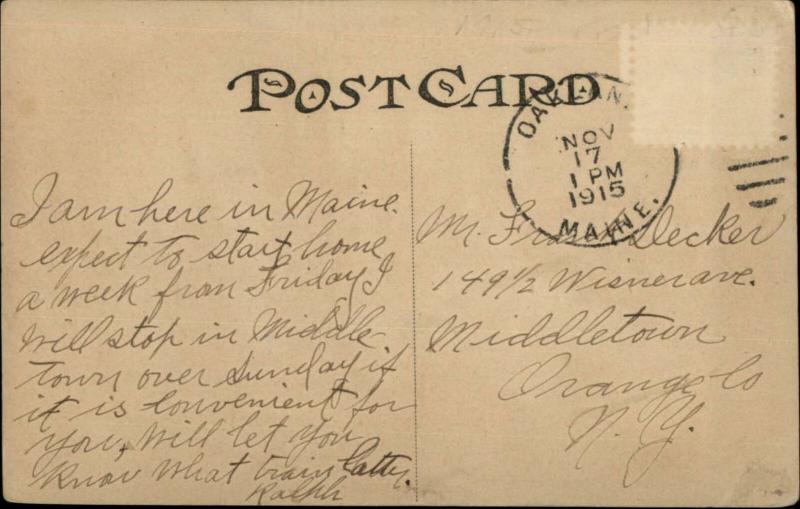 POST CARD
OAKLAND
NOV
17
1 PM
1915
MAINE.
I am here in Maine.
expect to start home
a week from Friday I
will stop in Middle
town over Sunday if
it is convenient for
you, will let you
know what train later.
Ralph
Mr. Decker
149 1/2 Wisner ave.
Middletown
Orange Co
N. Y.